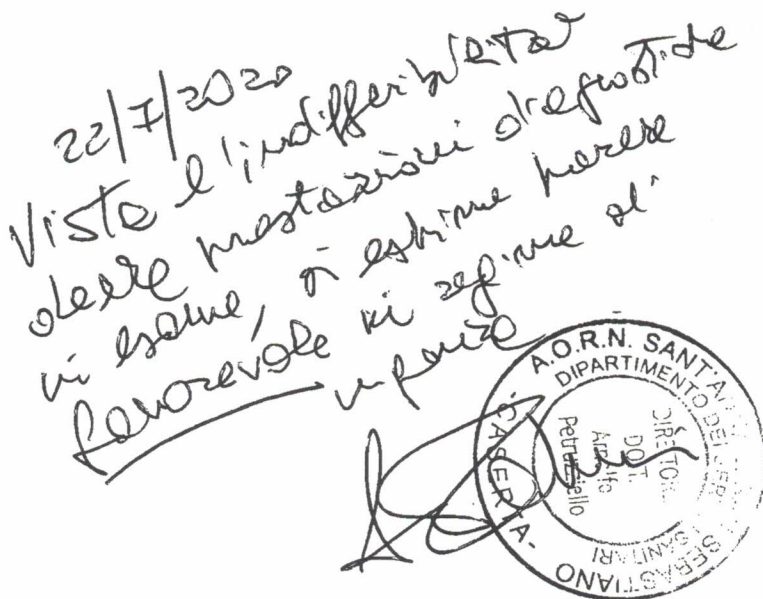 22/7/2020
Vista l'indifferibilità
delle prestazioni diagnostiche
in esame, si esprime parere
favorevole in regime di
urgenza
A.O.R.N. SANT'A
SEBASTIANO
- CASERTA -
DIPARTIMENTO DEI SER
SANITARI
DIRETTORE
DOTT.
Arnolfo
Petruzziello